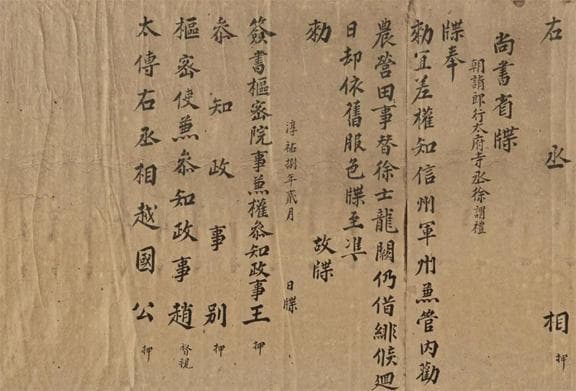 右丞相 押
尚書省牒
朝請郎行太府寺丞徐謂禮
牒奉
勑宜差權知信州軍州兼管內勸
農營田事替徐士龍闕仍借緋候廻
日却依舊服色牒至准
勑 故牒
淳祐捌年貳月 日牒
簽書樞密院事兼權叅知政事王 押
叅知政事別 押
樞密使兼叅知政事趙 督視
太傅右丞相越國公 押